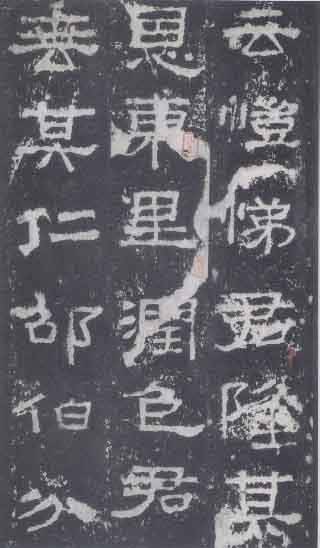 云愷悌君隆其
恩東里潤色君
垂其仁邵伯分